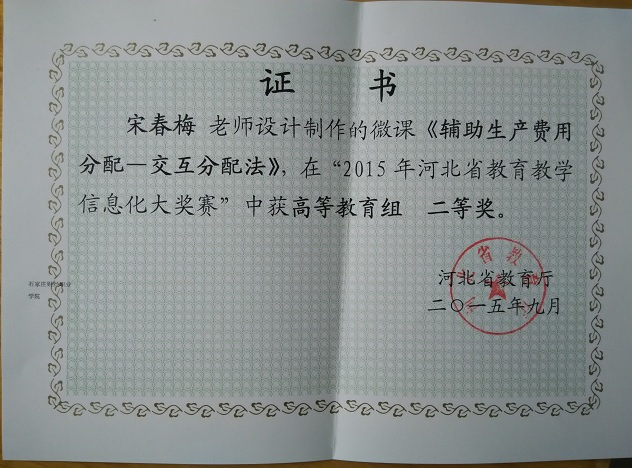 证 书
宋春梅 老师设计制作的微课《辅助生产费用
分配—交互分配法》，在“2015年河北省教育教学
信息化大奖赛”中获高等教育组 二等奖。
河北省教育厅
二〇一五年九月
石家庄
学院
省教